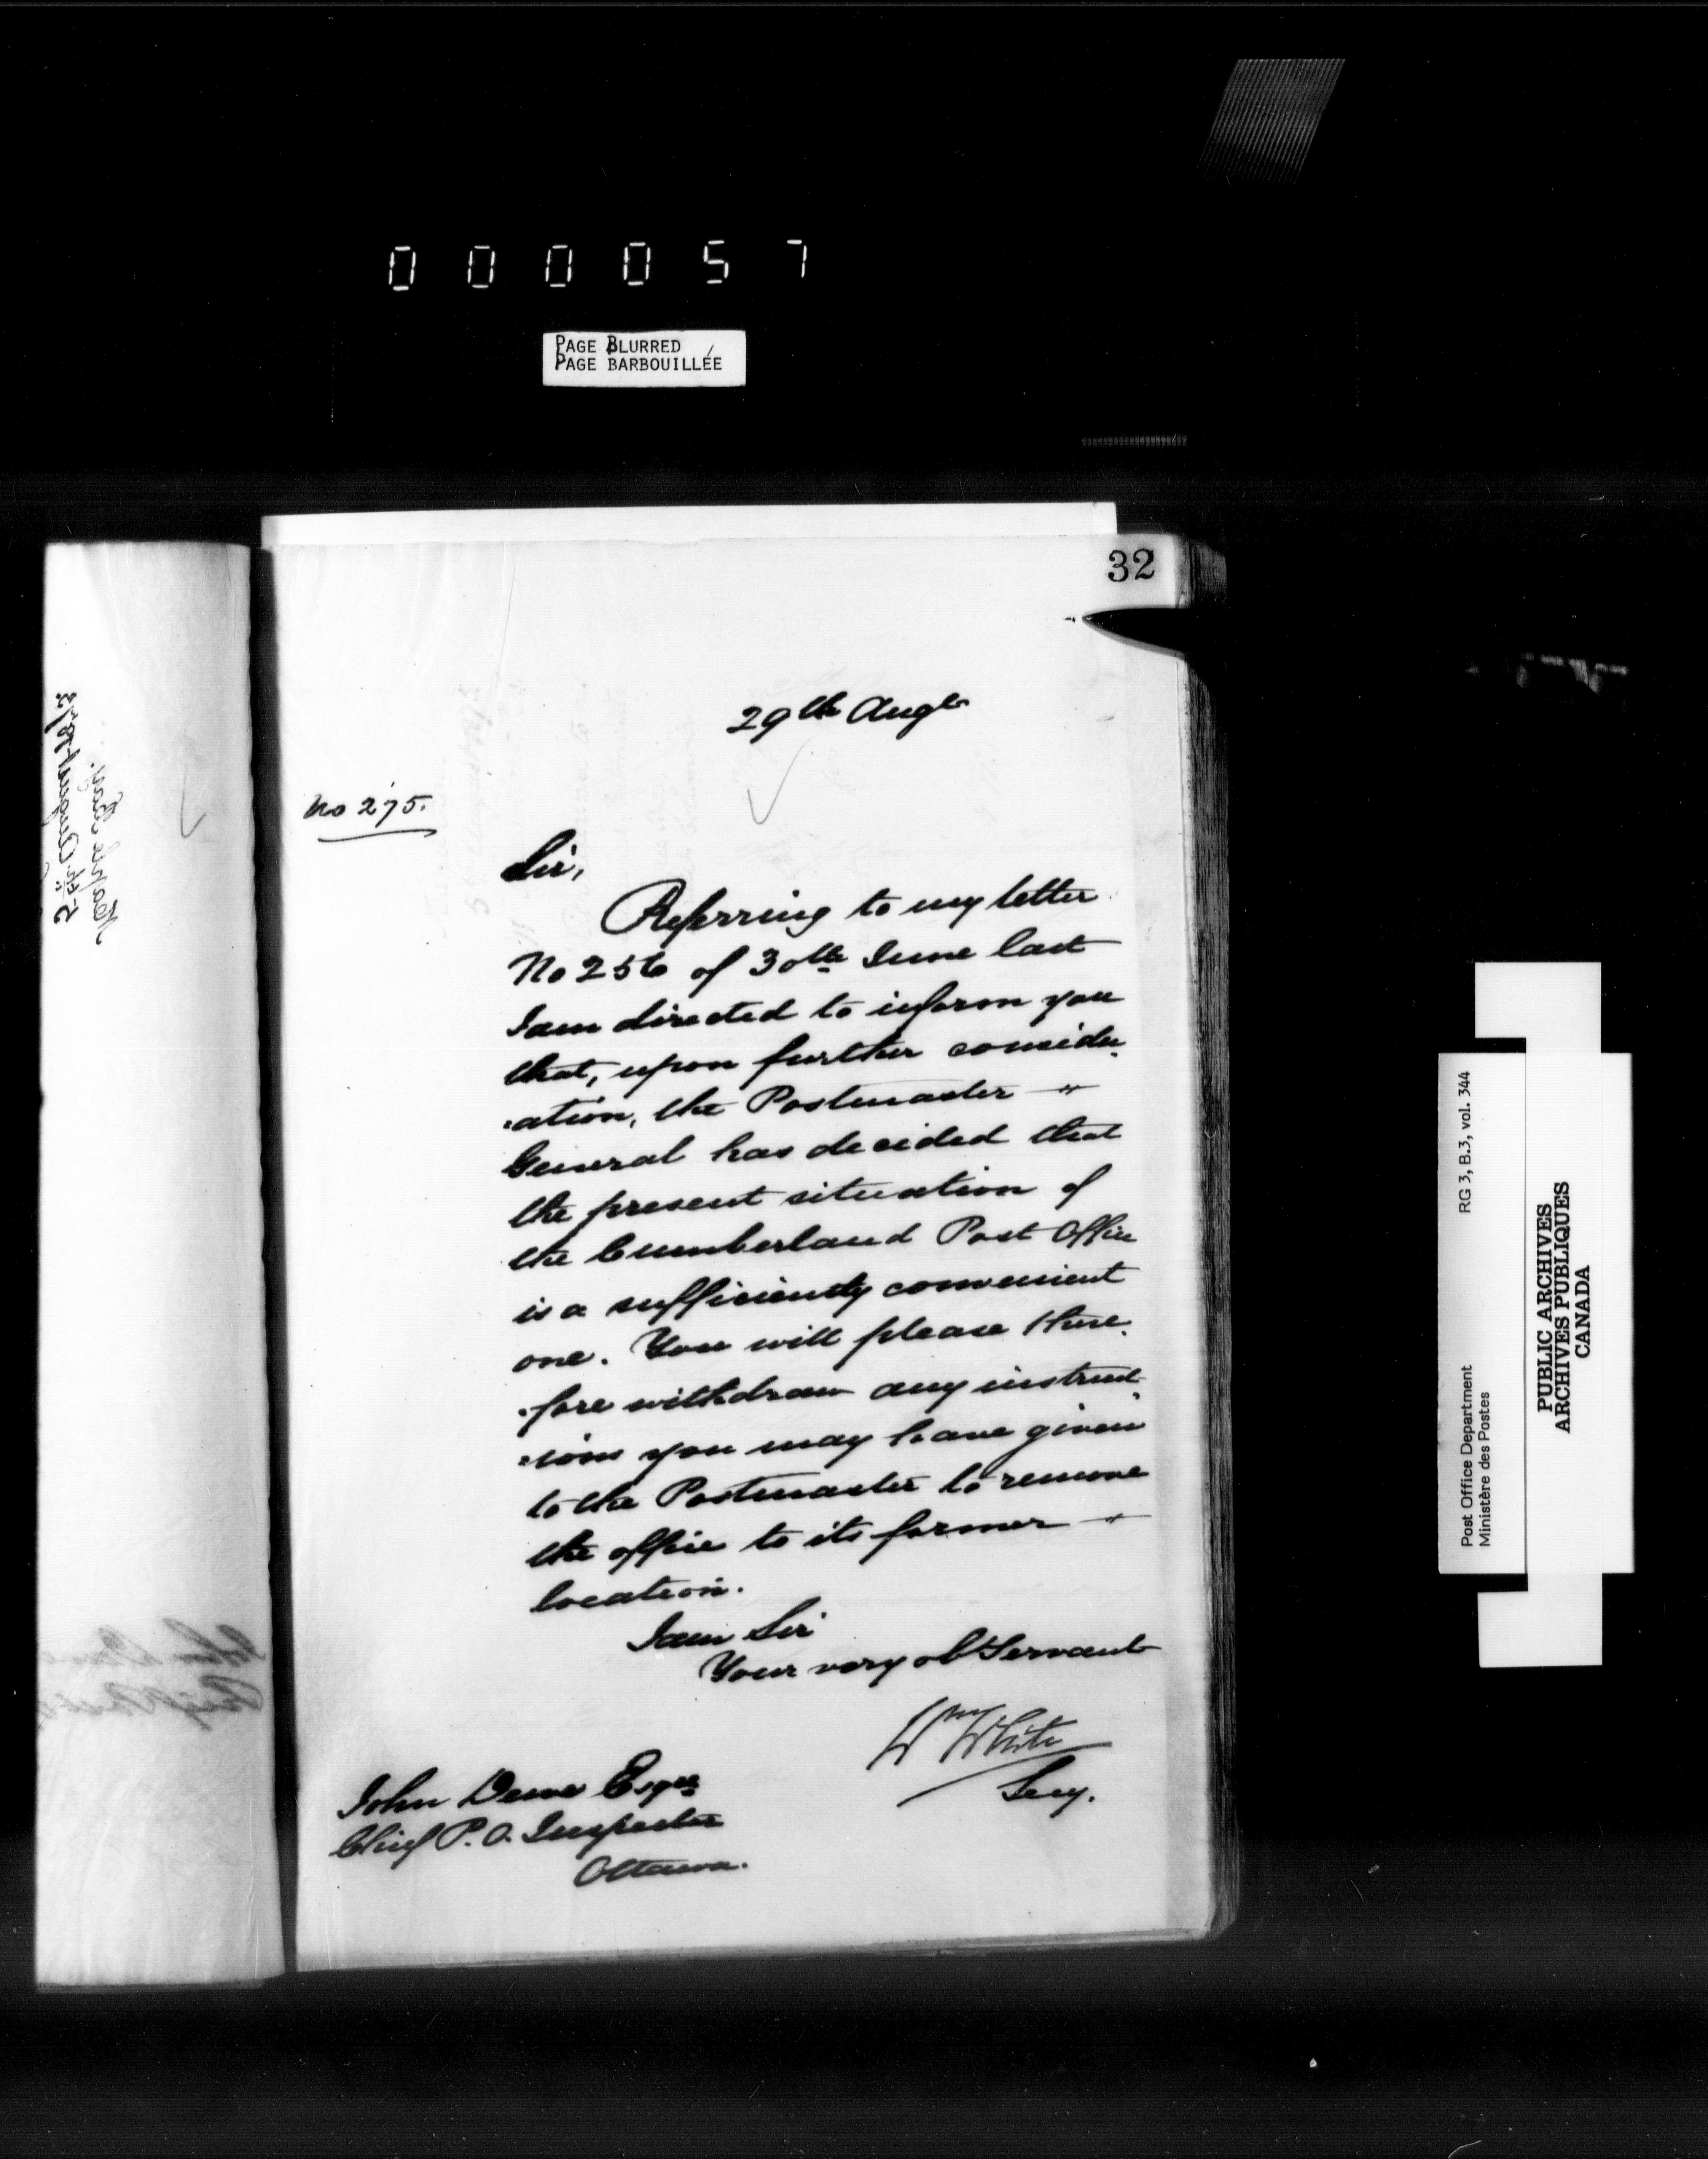 0 0 0 0 5 7
PAGE BLURRED
PAGE BARBOUILLÉE
32
29th Augt
No 275.
Sir,
Referring to my letter
No 256 of 30th June last
I am directed to inform you
that, upon further consider-
-ation, the Postmaster -
General has decided that
the present situation of
the Cumberland Post Office
is a sufficiently convenient
one. You will please there-
-fore withdraw any instruct-
-ions you may have given
to the Postmaster to remove
the office to its former -
location.
I am Sir
Your very obt Servant
Wm White
Secy.
John Dewe Esqre
Chief P. O. Inspector
Ottawa.
5th August 1873
Post Office Department
Ministère des Postes
RG 3, B.3, vol. 344
PUBLIC ARCHIVES
ARCHIVES PUBLIQUES
CANADA